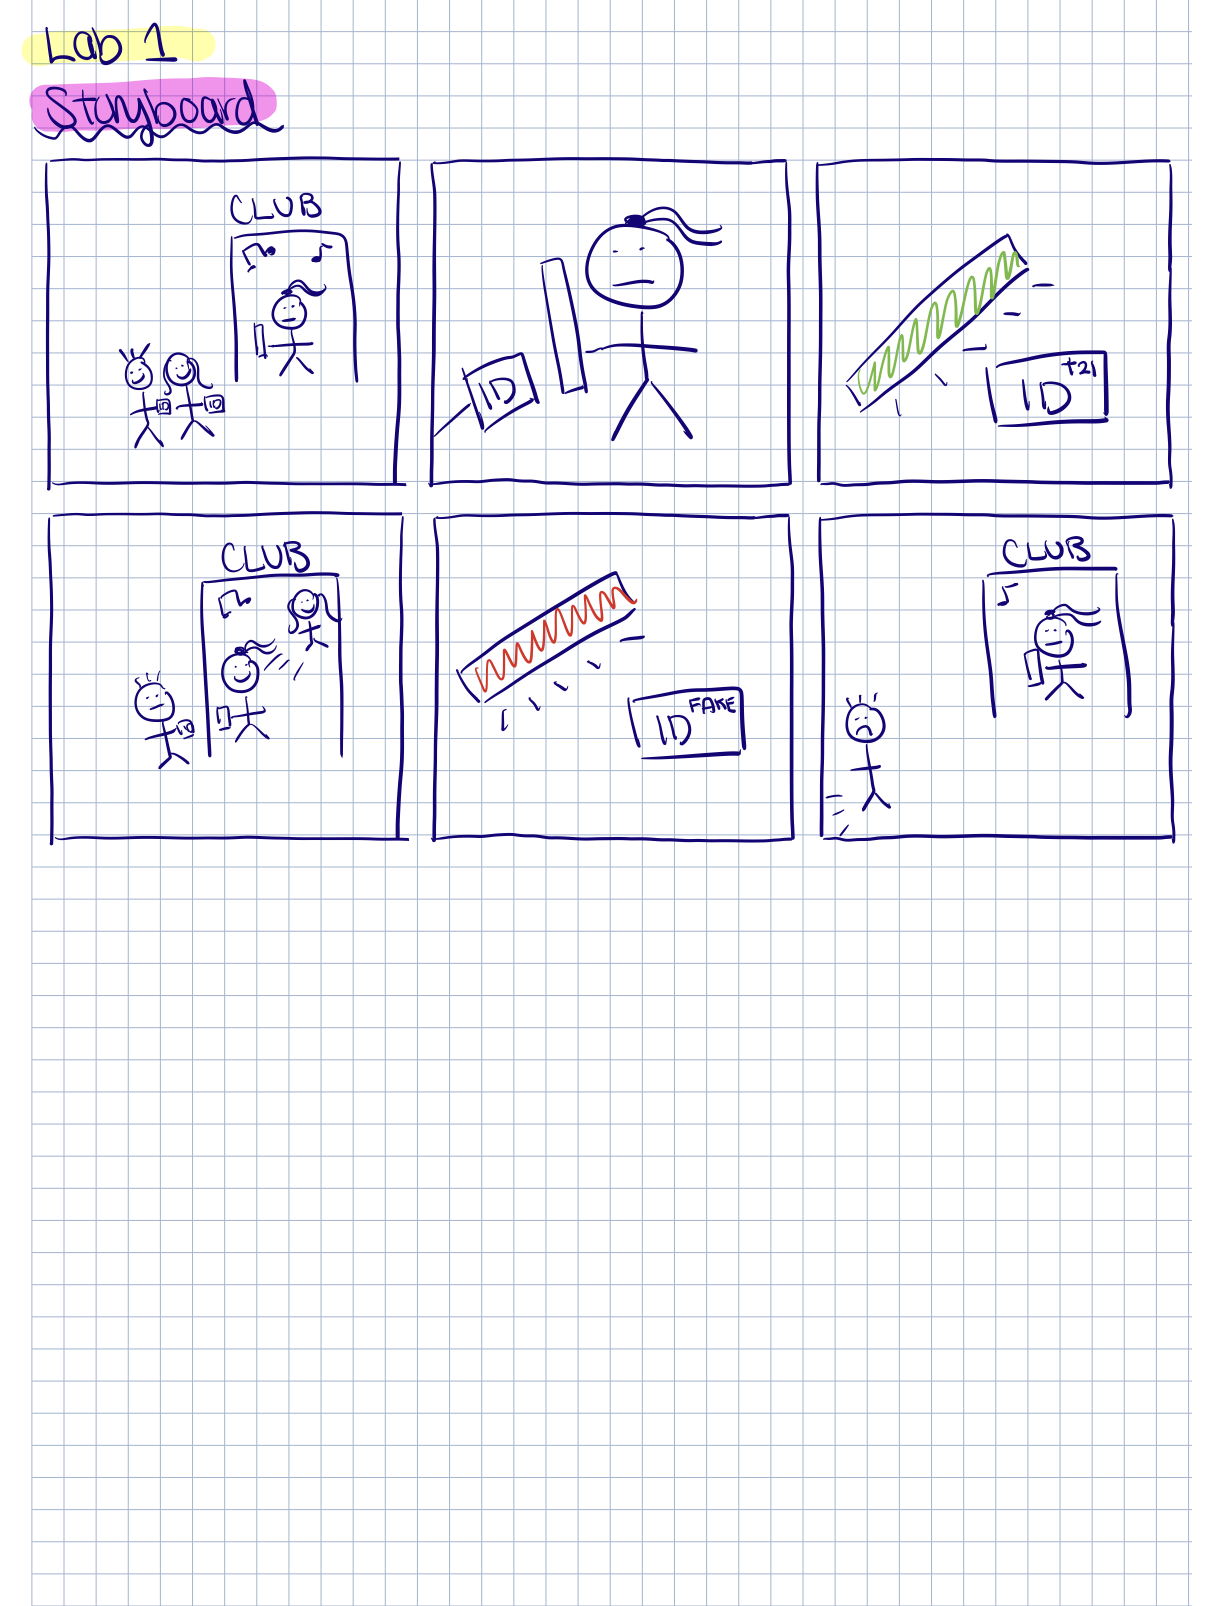 Lab 1
Storyboard
CLUB
ID ID
ID
+21
ID
CLUB
ID
FAKE
ID
CLUB